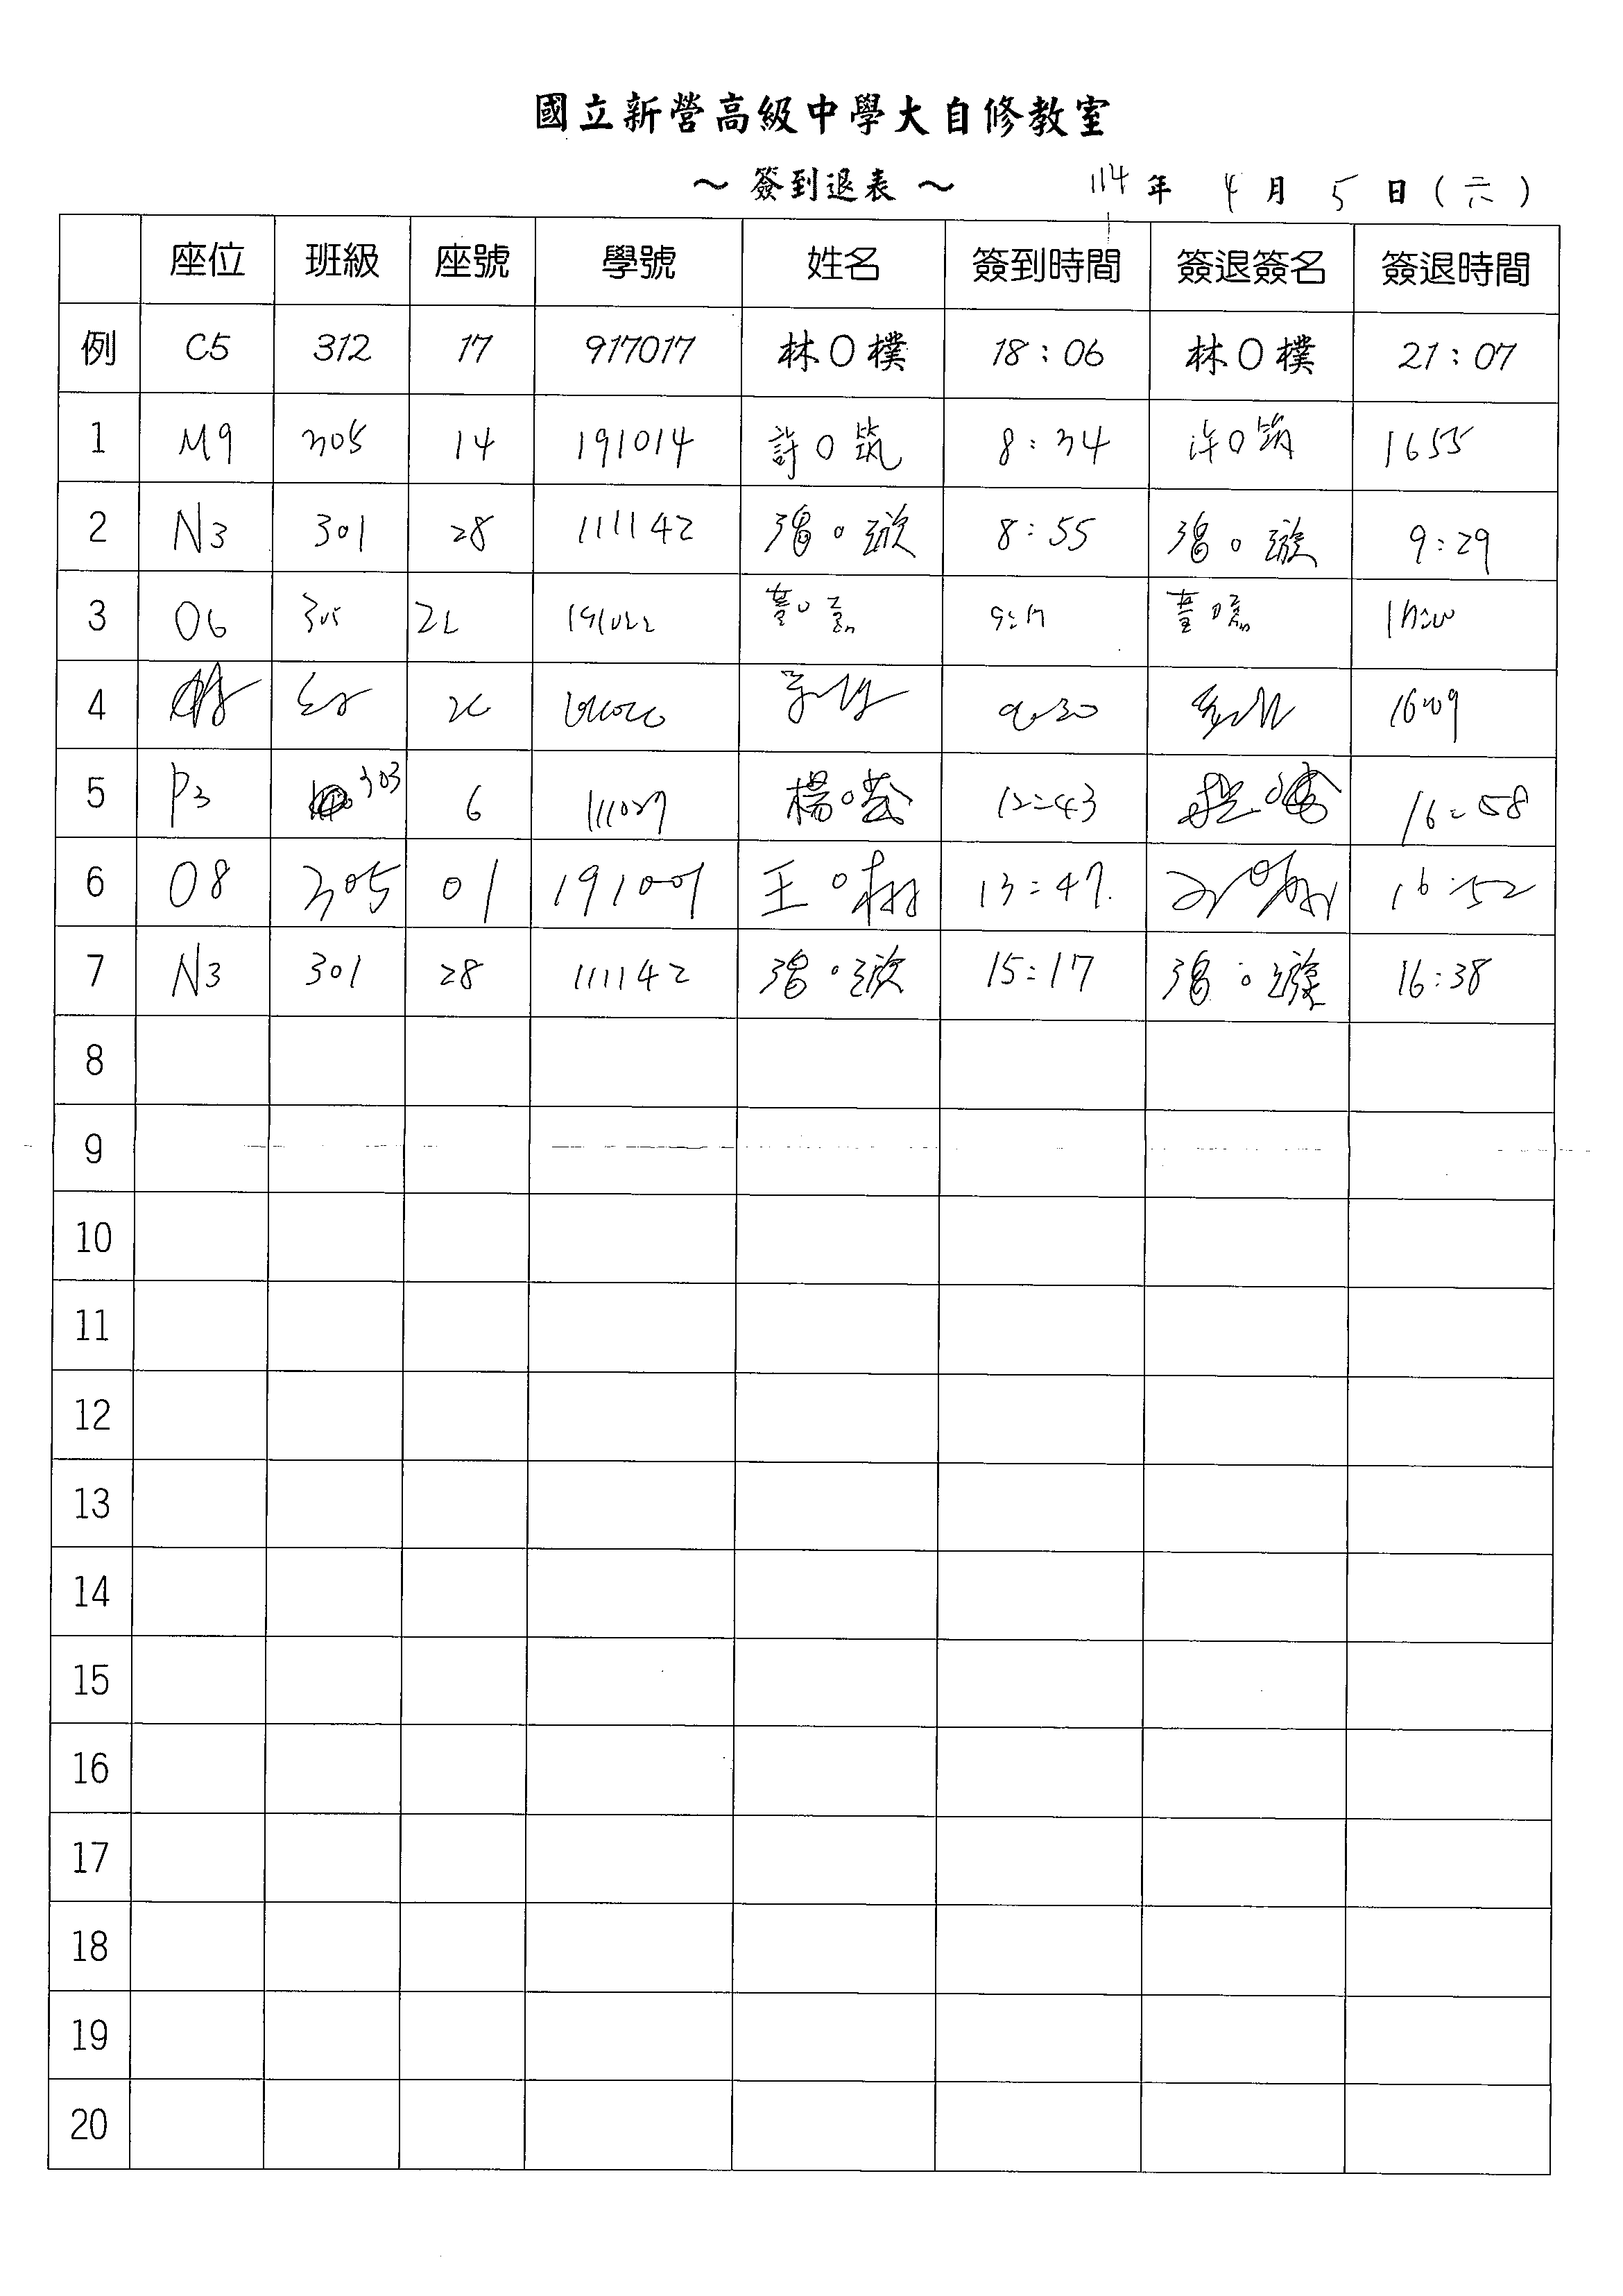 國立新營高級中學大自修教室
～ 簽到退表 ～ 114 年 4 月 5 日 ( 六 )
座位 班級 座號 學號 姓名 簽到時間 簽退簽名 簽退時間
例 C5 312 17 917017 林O樸 18:06 林O樸 21:07
1 M9 305 14 191014 許O筑 8:34 許O筑 1655
2 N3 301 28 111142 馮○璇 8:55 馮○璇 9:29
3 06 305 22 191022 9:17
4 9:30 1609
5 P3 303 6 111027 楊○ 12:43 16:58
6 08 305 01 191001 王○ 13:47 16:52
7 N3 301 28 111142 馮○璇 15:17 馮○璇 16:38
8
9
10
11
12
13
14
15
16
17
18
19
20